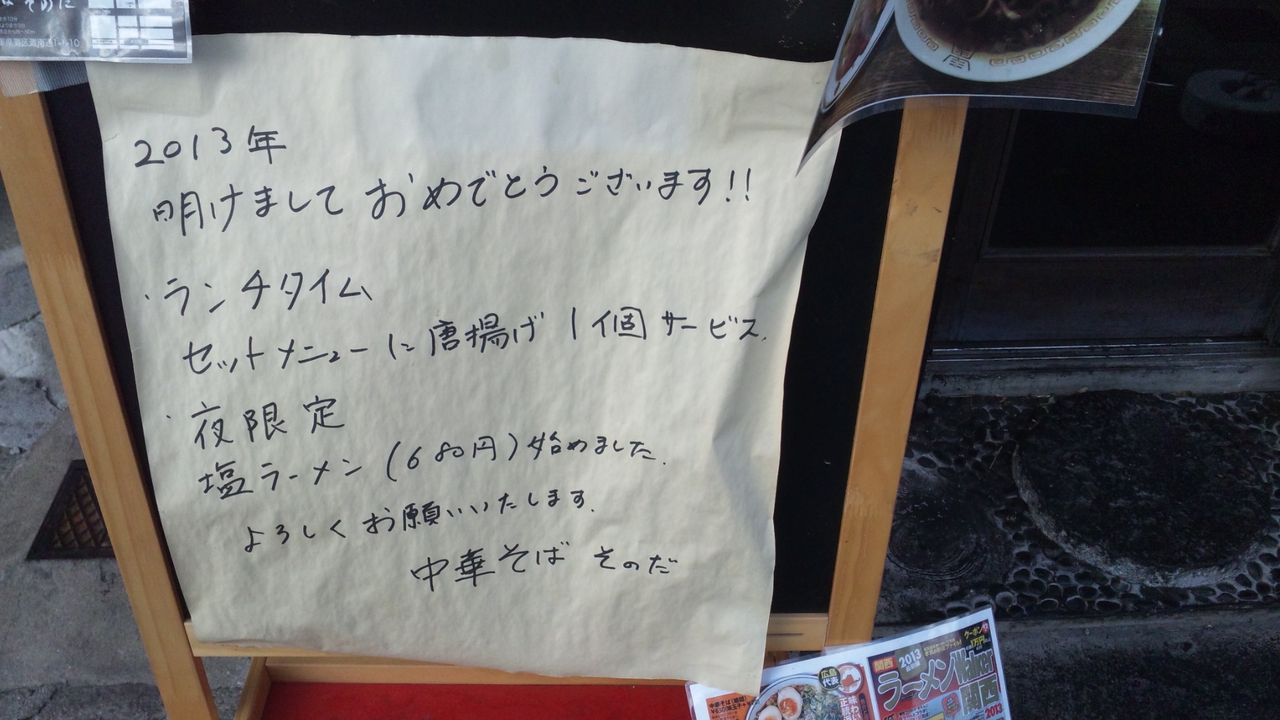 そのだ
2013年
明けましておめでとうございます!!
・ランチタイム
セットメニューに唐揚げ1個サービス.
・夜限定
塩ラーメン(680円)始めました.
よろしくお願いいたします.
中華そば そのだ
クーポン
関西
2013
ラーメンWalker
関西
2013
広島
代表